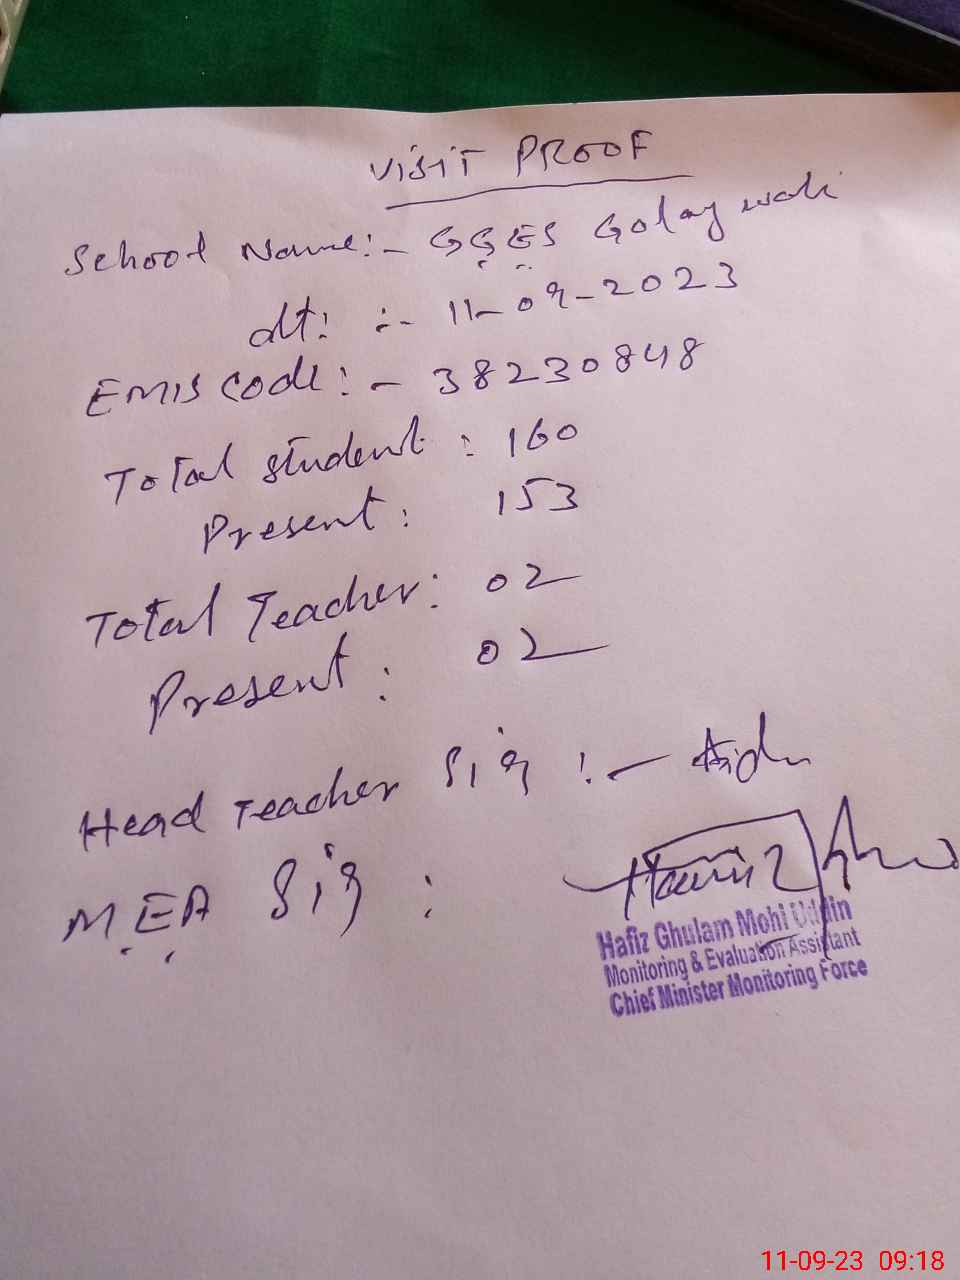 VISIT PROOF
School Name:- GGES Golay wali
dt: :- 11-09-2023
EMIS Code:- 38230848
Total student: 160
Present: 153
Total Teacher: 02
Present: 02
Head Teacher Sig:-
MEA Sig:
Hafiz Ghulam Mohi Uddin
Monitoring & Evaluation Assistant
Chief Minister Monitoring Force
11-09-23 09:18